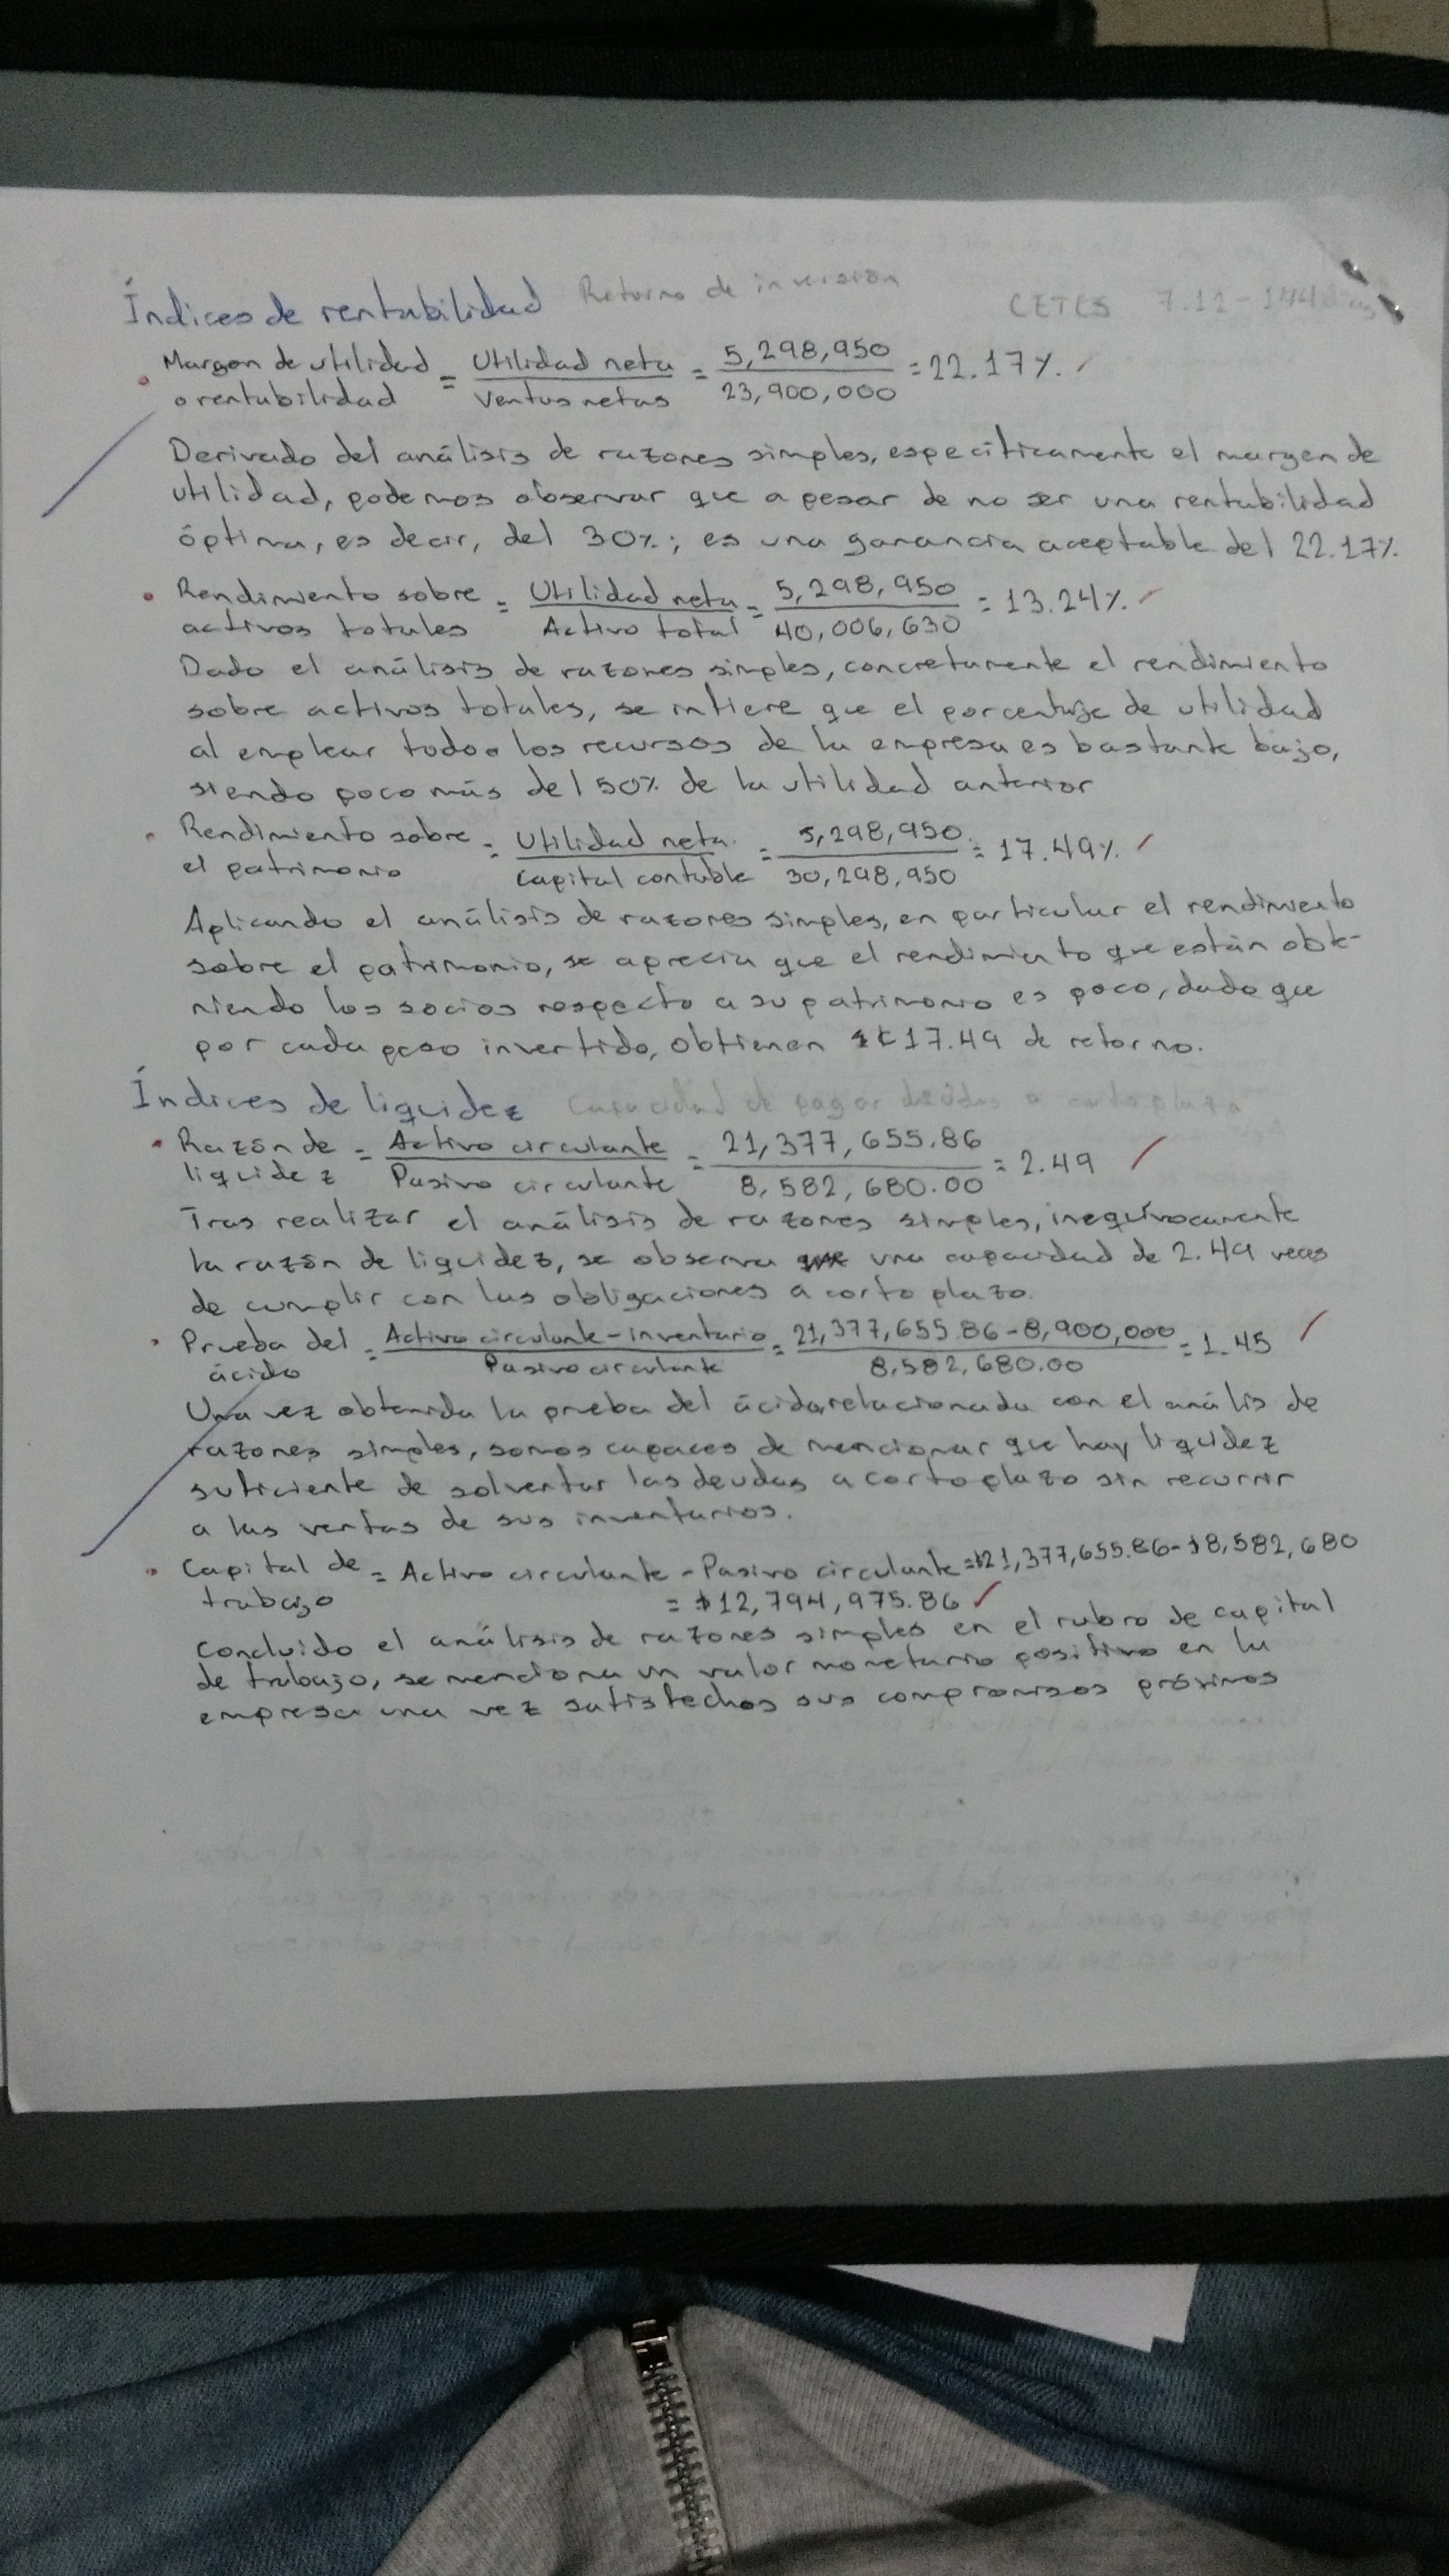 Índices de rentabilidad Retorno de inversión
CETES 7.12-144
Margen de utilidad o rentabilidad = Utilidad neta / Ventas netas = 5,298,950 / 23,900,000 = 22.17%.
Derivado del análisis de razones simples, específicamente el margen de
utilidad, podemos observar que a pesar de no ser una rentabilidad
óptima, es decir, del 30%; es una ganancia aceptable del 22.17%.
• Rendimiento sobre activos totales = Utilidad neta / Activo total = 5,298,950 / 40,006,630 = 13.24%.
Dado el análisis de razones simples, concretamente el rendimiento
sobre activos totales, se infiere que el porcentaje de utilidad
al emplear todos los recursos de la empresa es bastante bajo,
siendo poco más del 50% de la utilidad anterior
• Rendimiento sobre el patrimonio = Utilidad neta / Capital contable = 5,298,950 / 30,298,950 = 17.49%.
Aplicando el análisis de razones simples, en particular el rendimiento
sobre el patrimonio, se aprecia que el rendimiento que están obte-
niendo los socios respecto a su patrimonio es poco, dado que
por cada peso invertido, obtienen 17.49 de retorno.
Índices de liquidez Capacidad de pagar deudas a corto plazo
• Razón de liquidez = Activo circulante / Pasivo circulante = 21,377,655.86 / 8,582,680.00 = 2.49
Tras realizar el análisis de razones simples, inequívocamente
la razón de liquidez, se observa una capacidad de 2.49 veces
de cumplir con las obligaciones a corto plazo.
• Prueba del ácido = Activo circulante - inventario / Pasivo circulante = 21,377,655.86 - 8,900,000 / 8,582,680.00 = 1.45
Una vez obtenida la prueba del ácido, relacionada con el anális de
razones simples, somos capaces de mencionar que hay liquidez
suficiente de solventar las deudas a corto plazo sin recurrir
a las ventas de sus inventarios.
• Capital de trabajo = Activo circulante - Pasivo circulante = $21,377,655.86 - $8,582,680
= $12,794,975.86
Concluido el análisis de razones simples en el rubro de capital
de trabajo, se menciona un valor monetario positivo en la
empresa una vez satisfechos sus compromisos próximos